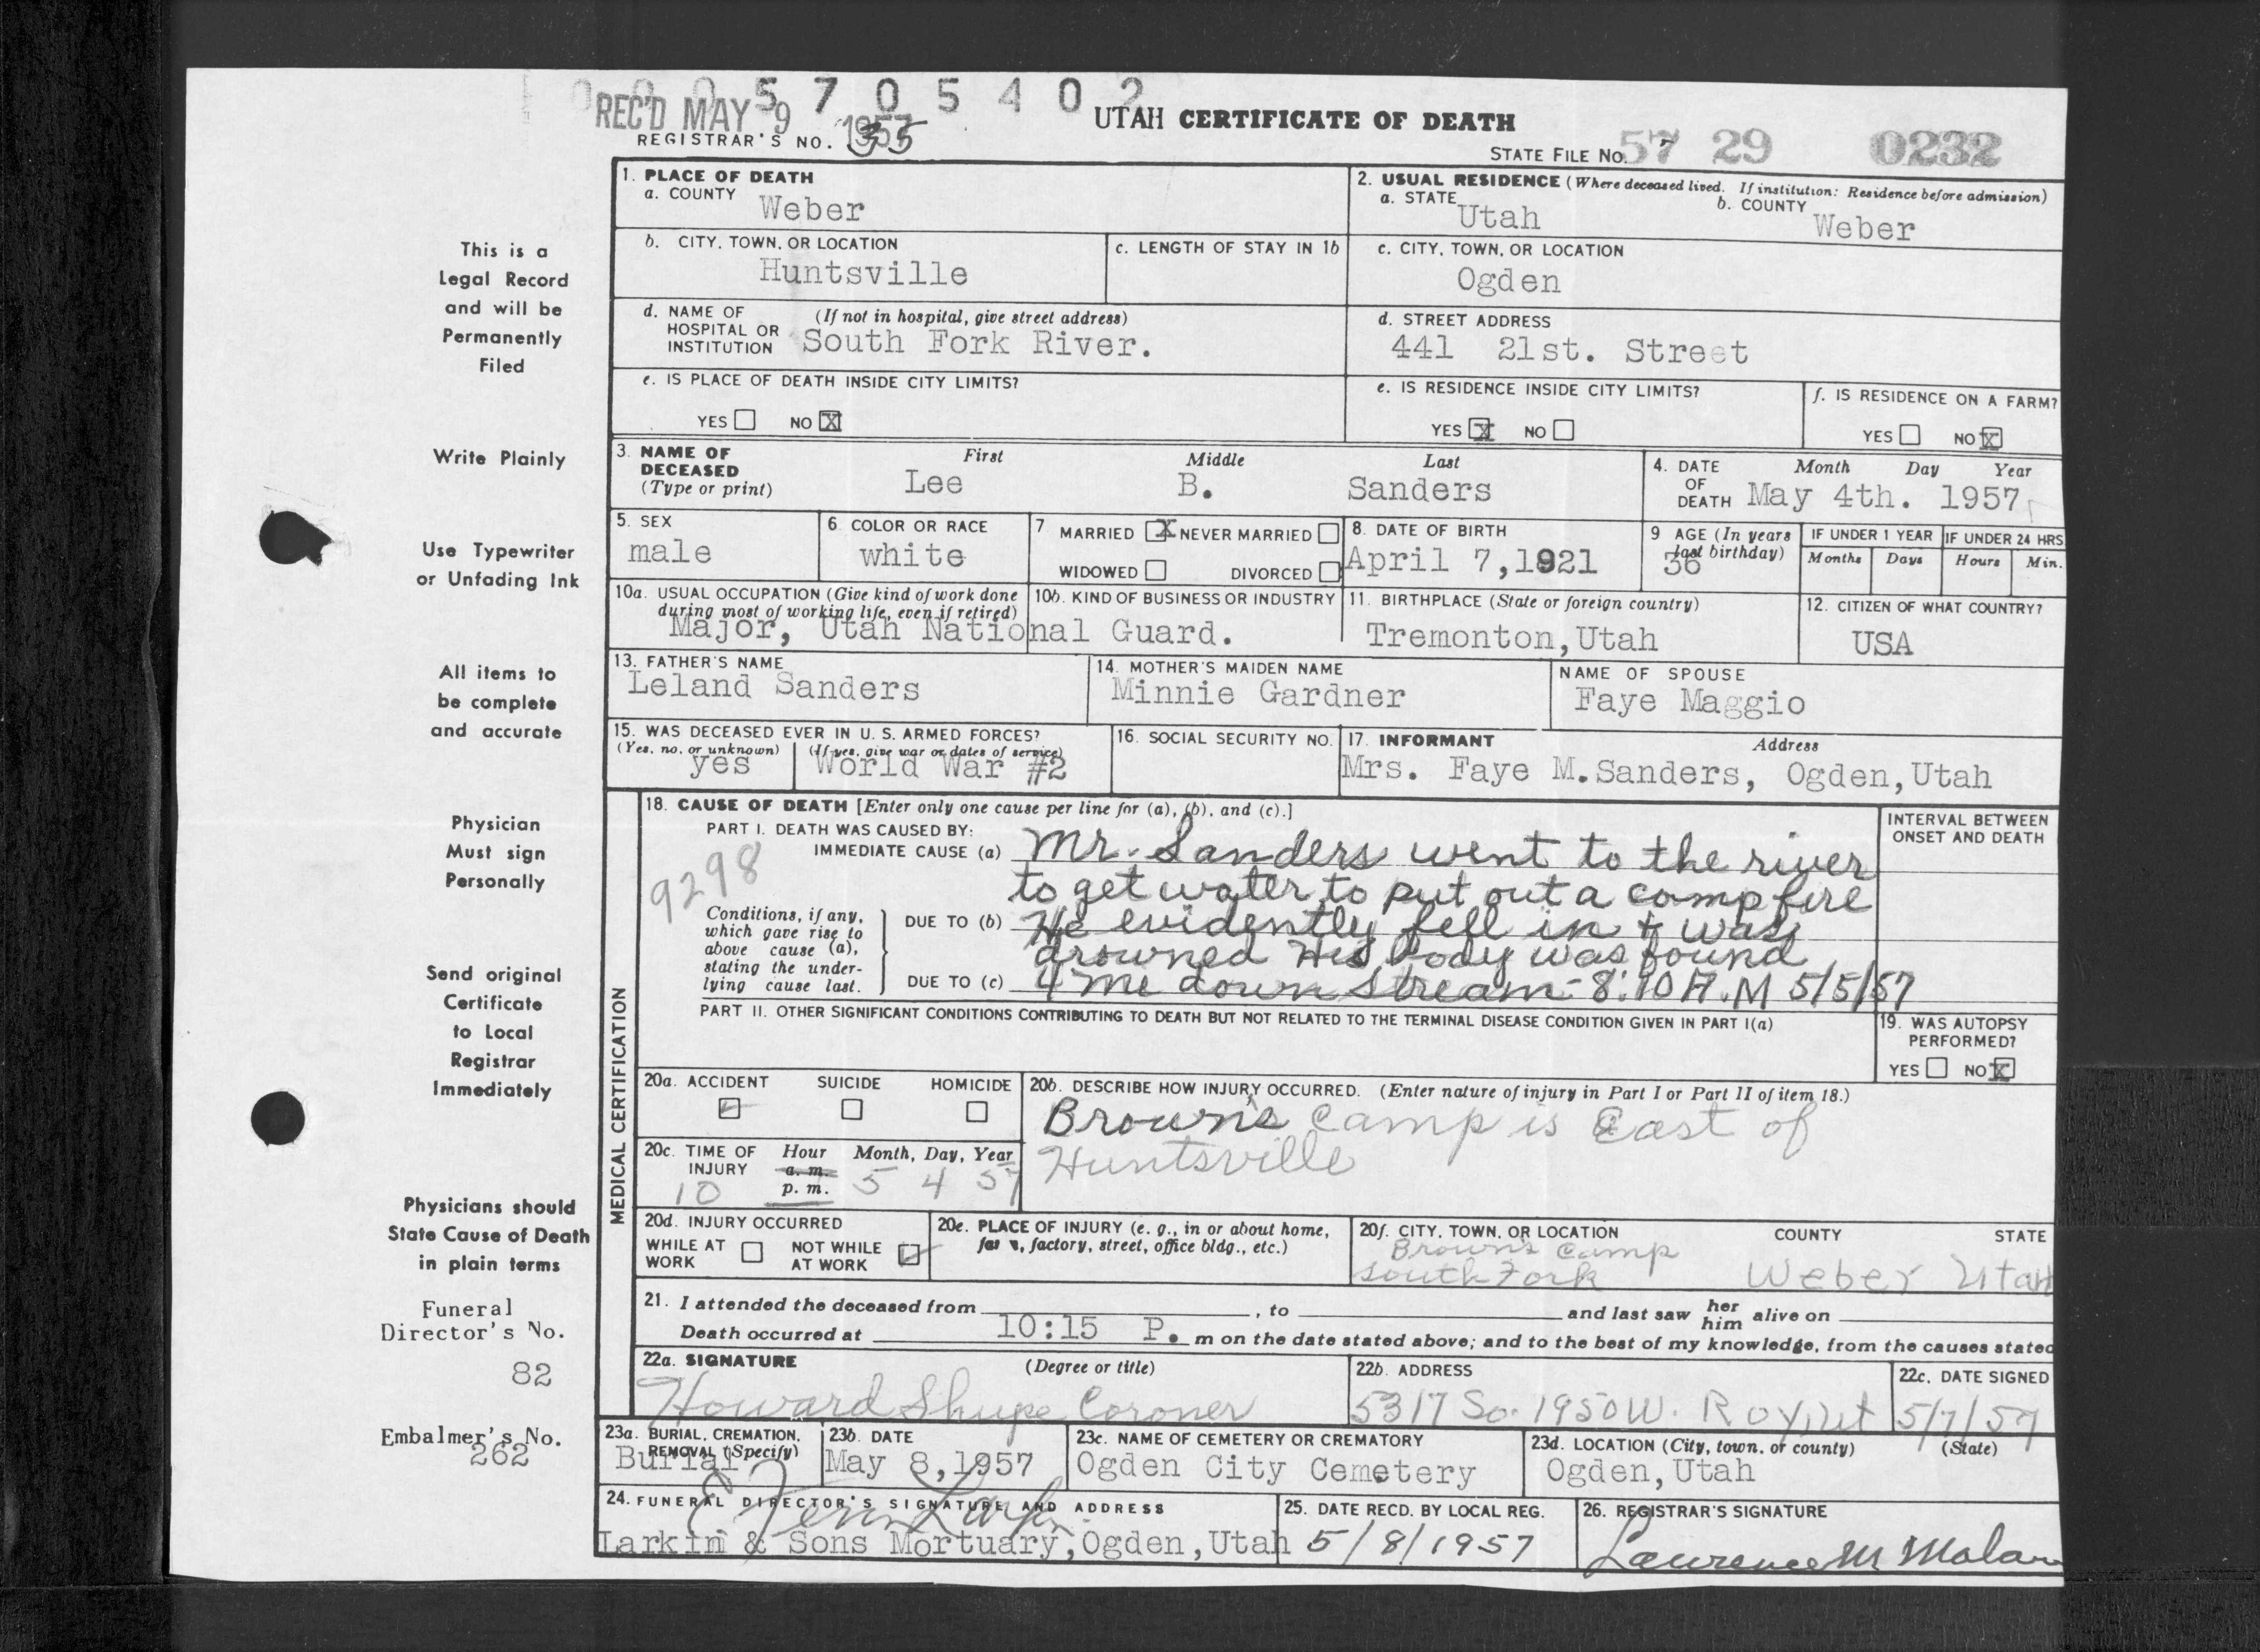 0 0 0 5 7 0 5 4 0 2
REC'D MAY 9 1957
UTAH CERTIFICATE OF DEATH
REGISTRAR'S NO. 35
STATE FILE NO. 57 29 0232
1. PLACE OF DEATH
a. COUNTY Weber
2. USUAL RESIDENCE (Where deceased lived. If institution: Residence before admission)
a. STATE Utah b. COUNTY Weber
b. CITY, TOWN, OR LOCATION Huntsville
c. LENGTH OF STAY IN 1b
c. CITY, TOWN, OR LOCATION Ogden
d. NAME OF HOSPITAL OR INSTITUTION (If not in hospital, give street address) South Fork River.
d. STREET ADDRESS 441 21st. Street
e. IS PLACE OF DEATH INSIDE CITY LIMITS?
YES NO X
e. IS RESIDENCE INSIDE CITY LIMITS?
YES X NO
f. IS RESIDENCE ON A FARM?
YES NO X
3. NAME OF DECEASED (Type or print)
First Middle Last
Lee B. Sanders
4. DATE OF DEATH Month Day Year
May 4th. 1957
5. SEX male
6. COLOR OR RACE white
7 MARRIED X NEVER MARRIED
WIDOWED DIVORCED
8. DATE OF BIRTH April 7, 1921
9 AGE (In years last birthday) 36
IF UNDER 1 YEAR Months Days
IF UNDER 24 HRS Hours Min.
10a. USUAL OCCUPATION (Give kind of work done during most of working life, even if retired)
10b. KIND OF BUSINESS OR INDUSTRY
Major, Utah National Guard.
11. BIRTHPLACE (State or foreign country) Tremonton, Utah
12. CITIZEN OF WHAT COUNTRY? USA
13. FATHER'S NAME Leland Sanders
14. MOTHER'S MAIDEN NAME Minnie Gardner
NAME OF SPOUSE Faye Maggio
15. WAS DECEASED EVER IN U. S. ARMED FORCES?
(Yes, no, or unknown) (If yes, give war or dates of service)
yes World War #2
16. SOCIAL SECURITY NO.
17. INFORMANT Address
Mrs. Faye M. Sanders, Ogden, Utah
MEDICAL CERTIFICATION
18. CAUSE OF DEATH [Enter only one cause per line for (a), (b), and (c).]
INTERVAL BETWEEN ONSET AND DEATH
PART I. DEATH WAS CAUSED BY:
9298
IMMEDIATE CAUSE (a) Mr. Sanders went to the river
to get water to put out a camp fire
Conditions, if any, which gave rise to above cause (a), stating the underlying cause last.
DUE TO (b) He evidently fell in + was
drowned His body was found
DUE TO (c) 4 me down stream - 8:10 A.M 5/5/57
PART II. OTHER SIGNIFICANT CONDITIONS CONTRIBUTING TO DEATH BUT NOT RELATED TO THE TERMINAL DISEASE CONDITION GIVEN IN PART I(a)
19. WAS AUTOPSY PERFORMED?
YES NO X
20a. ACCIDENT SUICIDE HOMICIDE
20b. DESCRIBE HOW INJURY OCCURRED. (Enter nature of injury in Part I or Part II of item 18.)
Brown's Camp is East of
Huntsville
20c. TIME OF INJURY Hour Month, Day, Year
a. m.
10 p. m. 5 4 57
20d. INJURY OCCURRED
WHILE AT WORK NOT WHILE AT WORK
20e. PLACE OF INJURY (e. g., in or about home, farm, factory, street, office bldg., etc.)
20f. CITY, TOWN, OR LOCATION COUNTY STATE
Brown's Camp
South Fork Weber Utah
21. I attended the deceased from , to and last saw her him alive on
Death occurred at 10:15 P. m on the date stated above; and to the best of my knowledge, from the causes stated
22a. SIGNATURE (Degree or title)
Howard Shupe Coroner
22b. ADDRESS
5317 So. 1950 W. Roy, Ut
22c. DATE SIGNED
5/7/57
23a. BURIAL, CREMATION, REMOVAL (Specify) Burial
23b. DATE May 8, 1957
23c. NAME OF CEMETERY OR CREMATORY Ogden City Cemetery
23d. LOCATION (City, town, or county) (State) Ogden, Utah
24. FUNERAL DIRECTOR'S SIGNATURE AND ADDRESS
Larkin & Sons Mortuary, Ogden, Utah
25. DATE RECD. BY LOCAL REG.
5/8/1957
26. REGISTRAR'S SIGNATURE
Lawrence M Malan
This is a
Legal Record
and will be
Permanently
Filed
Write Plainly
Use Typewriter
or Unfading Ink
All items to
be complete
and accurate
Physician
Must sign
Personally
Send original
Certificate
to Local
Registrar
Immediately
Physicians should
State Cause of Death
in plain terms
Funeral
Director's No.
82
Embalmer's No.
262